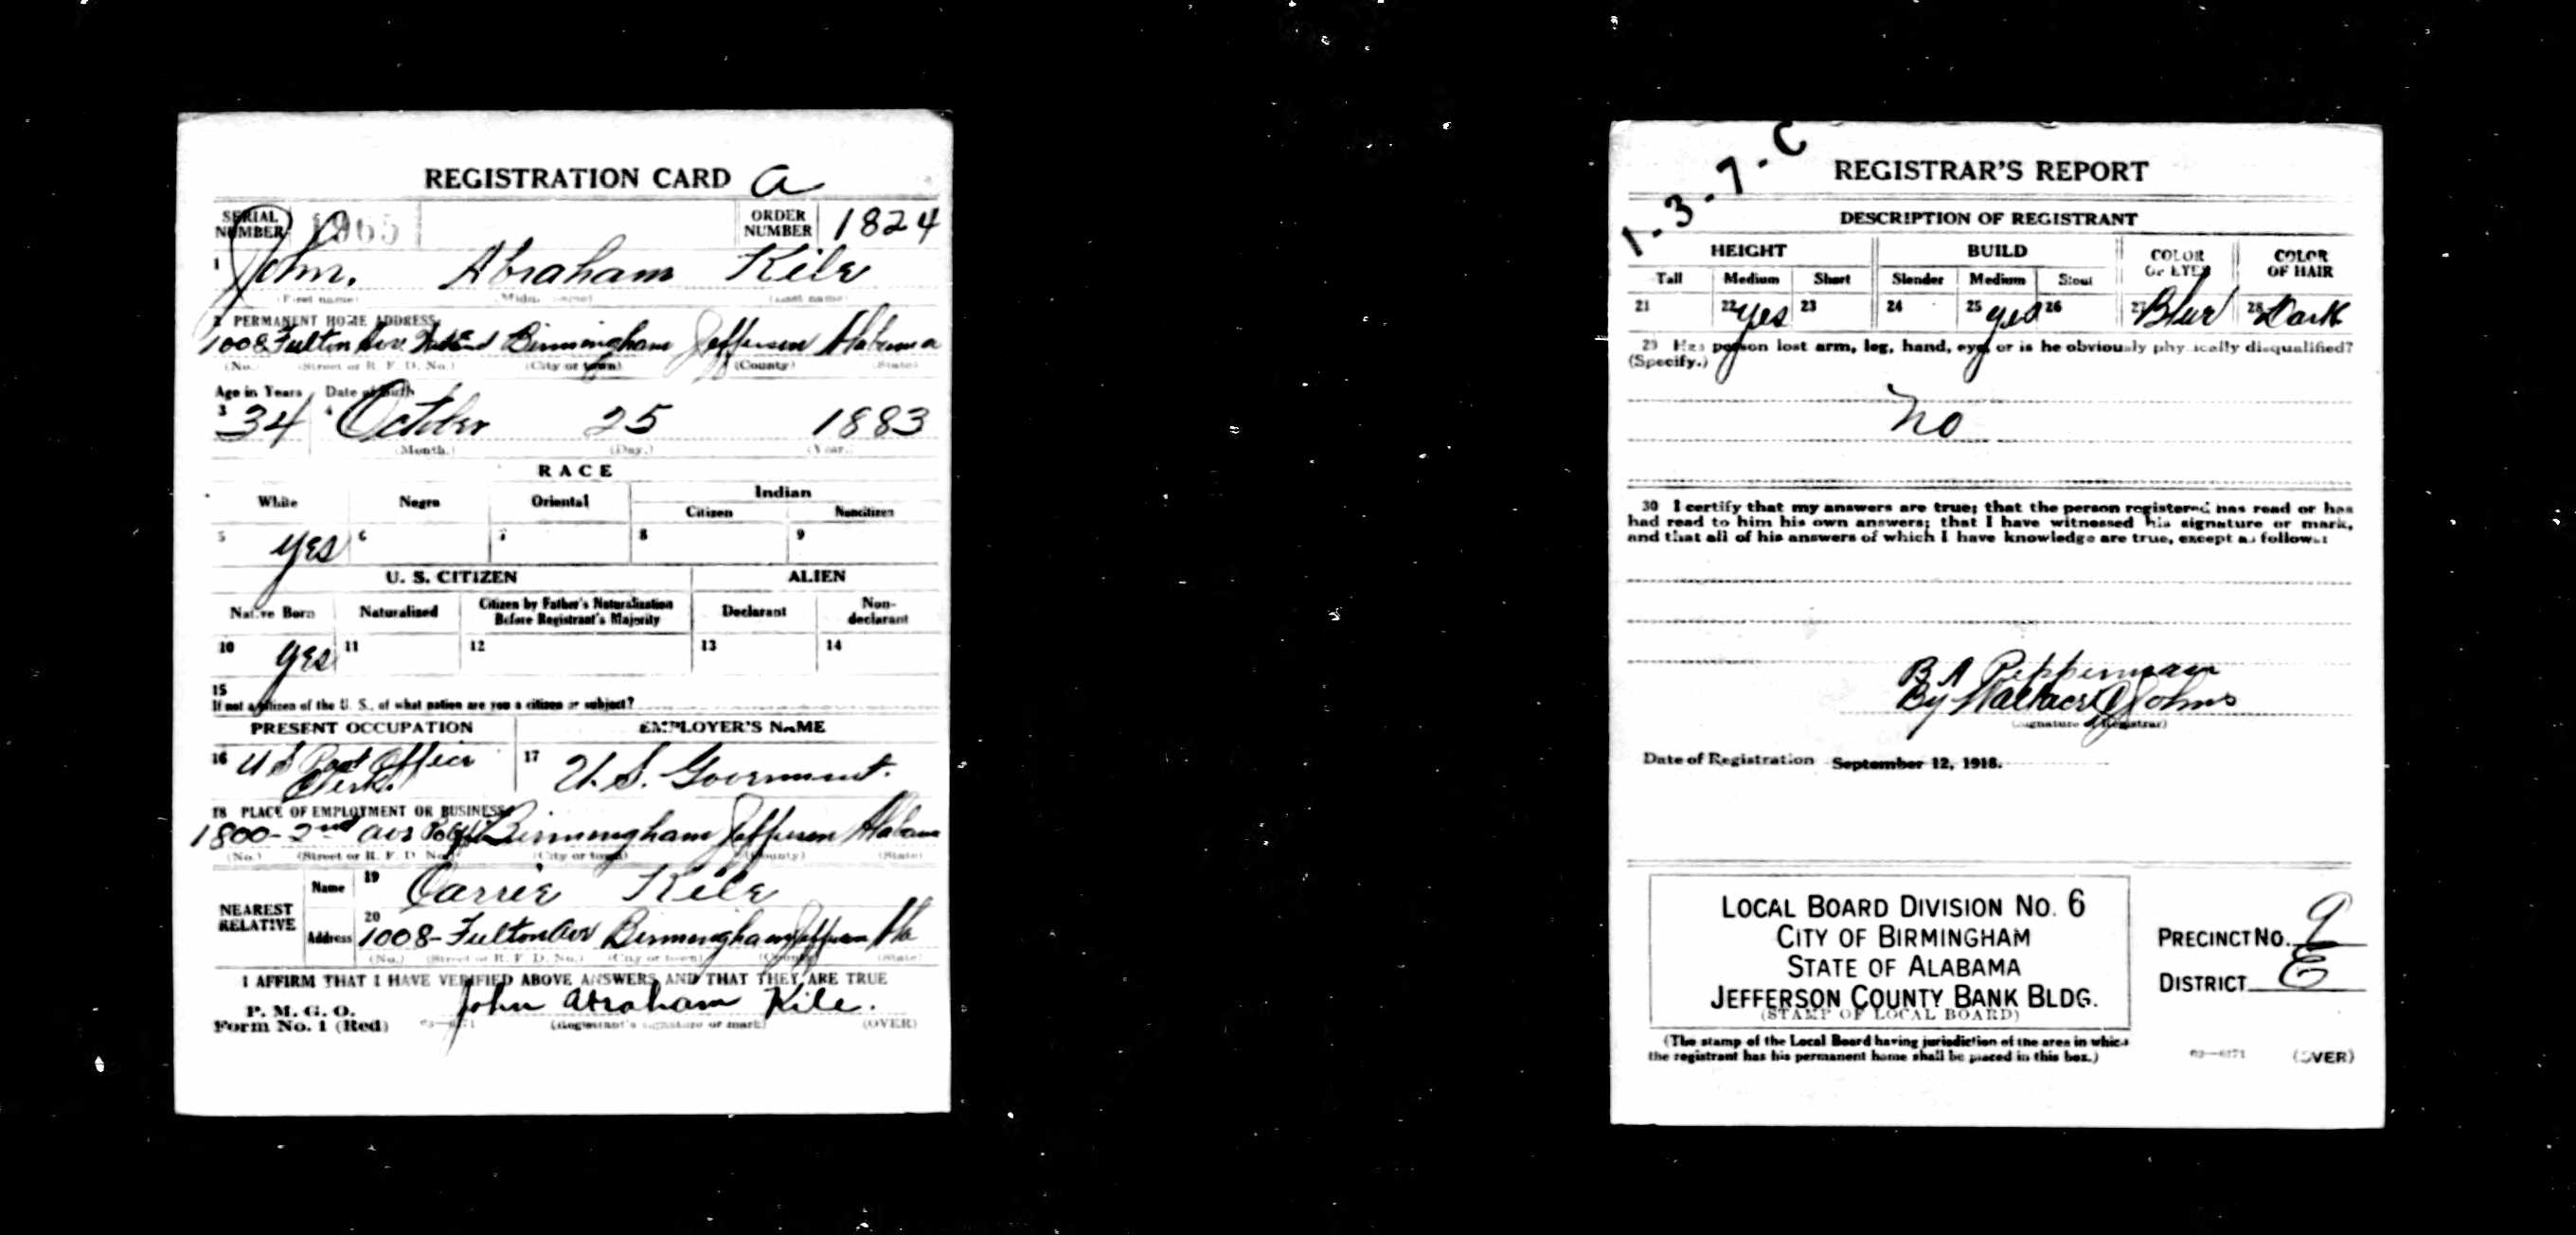 REGISTRATION CARD a
SERIAL NUMBER 1965 ORDER NUMBER 1824
1 John. Abraham Kile
(First name) (Middle name) (Last name)
2 PERMANENT HOME ADDRESS
1008 Fulton Ave Birmingham Jefferson Alabama
(No.) (Street or R. F. D. No.) (City or town) (County) (State)
Age in Years Date of Birth
3 34 4 October 25 1883
(Month.) (Day.) (Year.)
RACE
White Negro Oriental Indian
Citizen Noncitizen
5 yes 6 7 8 9
U. S. CITIZEN ALIEN
Native Born Naturalized Citizen by Father's Naturalization Before Registrant's Majority Declarant Non-declarant
10 yes 11 12 13 14
15
If not a citizen of the U. S., of what nation are you a citizen or subject?
PRESENT OCCUPATION EMPLOYER'S NAME
16 U S Post Office Clerk. 17 U. S. Goverment.
18 PLACE OF EMPLOYMENT OR BUSINESS
1800- 2nd ave Birmingham Jefferson Alabama
(No.) (Street or R. F. D. No.) (City or town) (County) (State)
NEAREST RELATIVE
Name 19 Carrie Kile
Address 20 1008- Fulton Ave Birmingham Jefferson Ala
(No.) (Street or R. F. D. No.) (City or town) (County) (State)
I AFFIRM THAT I HAVE VERIFIED ABOVE ANSWERS AND THAT THEY ARE TRUE
P. M. G. O.
Form No. 1 (Red) 03—6171 John Abraham Kile.
(Registrant's signature or mark) (OVER)
1-3-7-C
REGISTRAR'S REPORT
DESCRIPTION OF REGISTRANT
HEIGHT BUILD COLOR OF EYES COLOR OF HAIR
Tall Medium Short Slender Medium Stout
21 22 yes 23 24 25 yes 26 27 Blue 28 Dark
29 Has person lost arm, leg, hand, eye, or is he obviously physically disqualified?
(Specify.)
No
30 I certify that my answers are true; that the person registered has read or has
had read to him his own answers; that I have witnessed his signature or mark,
and that all of his answers of which I have knowledge are true, except as follows:
B A Pepperman
By Wallace C Johns
(Signature of Registrar)
Date of Registration September 12, 1918.
LOCAL BOARD DIVISION NO. 6
CITY OF BIRMINGHAM
STATE OF ALABAMA
JEFFERSON COUNTY BANK BLDG.
(STAMP OF LOCAL BOARD)
PRECINCT NO. 9
DISTRICT E
(The stamp of the Local Board having jurisdiction of the area in which
the registrant has his permanent home shall be placed in this box.)
03—6171 (OVER)